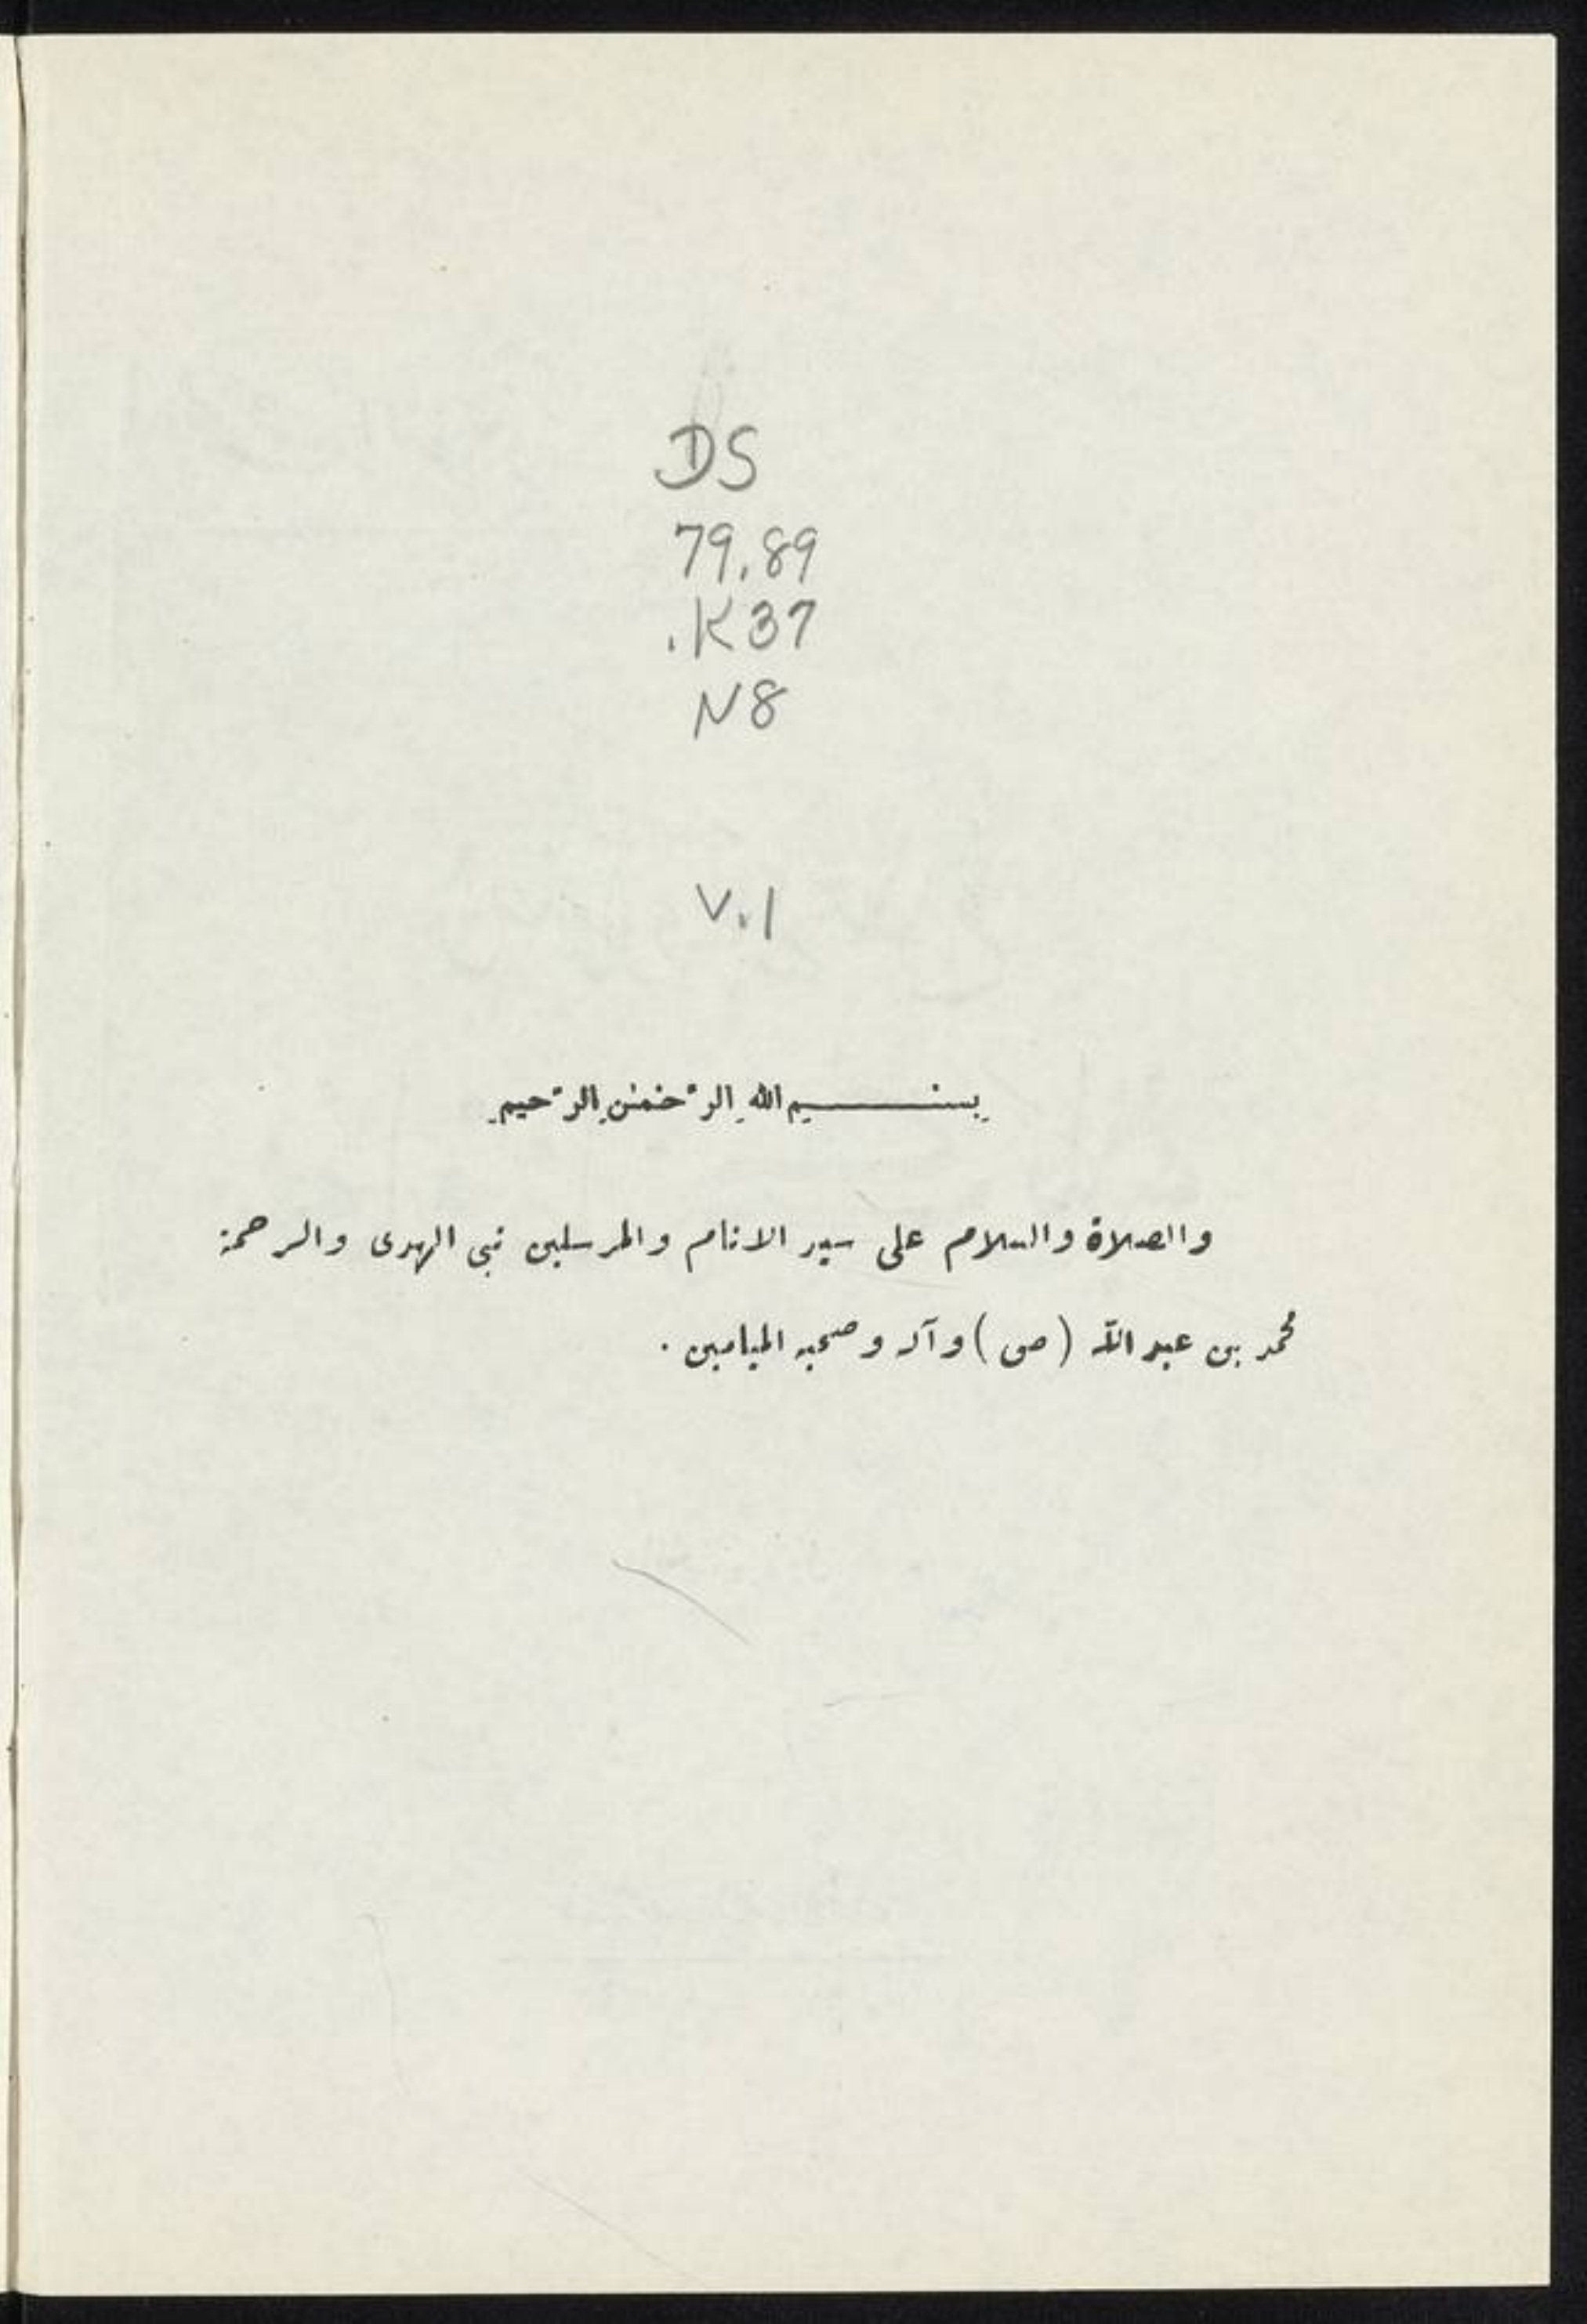 DS
79.89
.K37
N8
V.1
بسم الله الرحمن الرحيم
والصلاة والسلام على سيد الانام والمرسلين نبي الهدى والرحمة
محمد بن عبد الله (ص) وآله وصحبه الميامين .